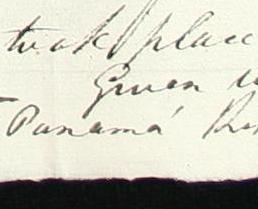 took place
Given u
Panamá Re